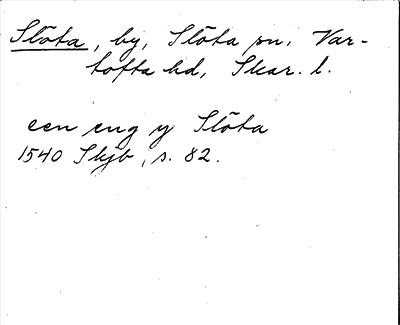 Slöta, by, Slöta sn. Var-
tofta hd, Skar. l.
een eng y Slöta
1540 Skjb, s. 82.